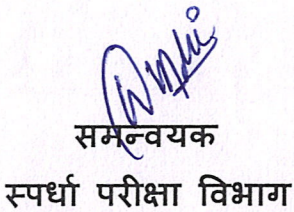 समन्वयक
स्पर्धा परीक्षा विभाग